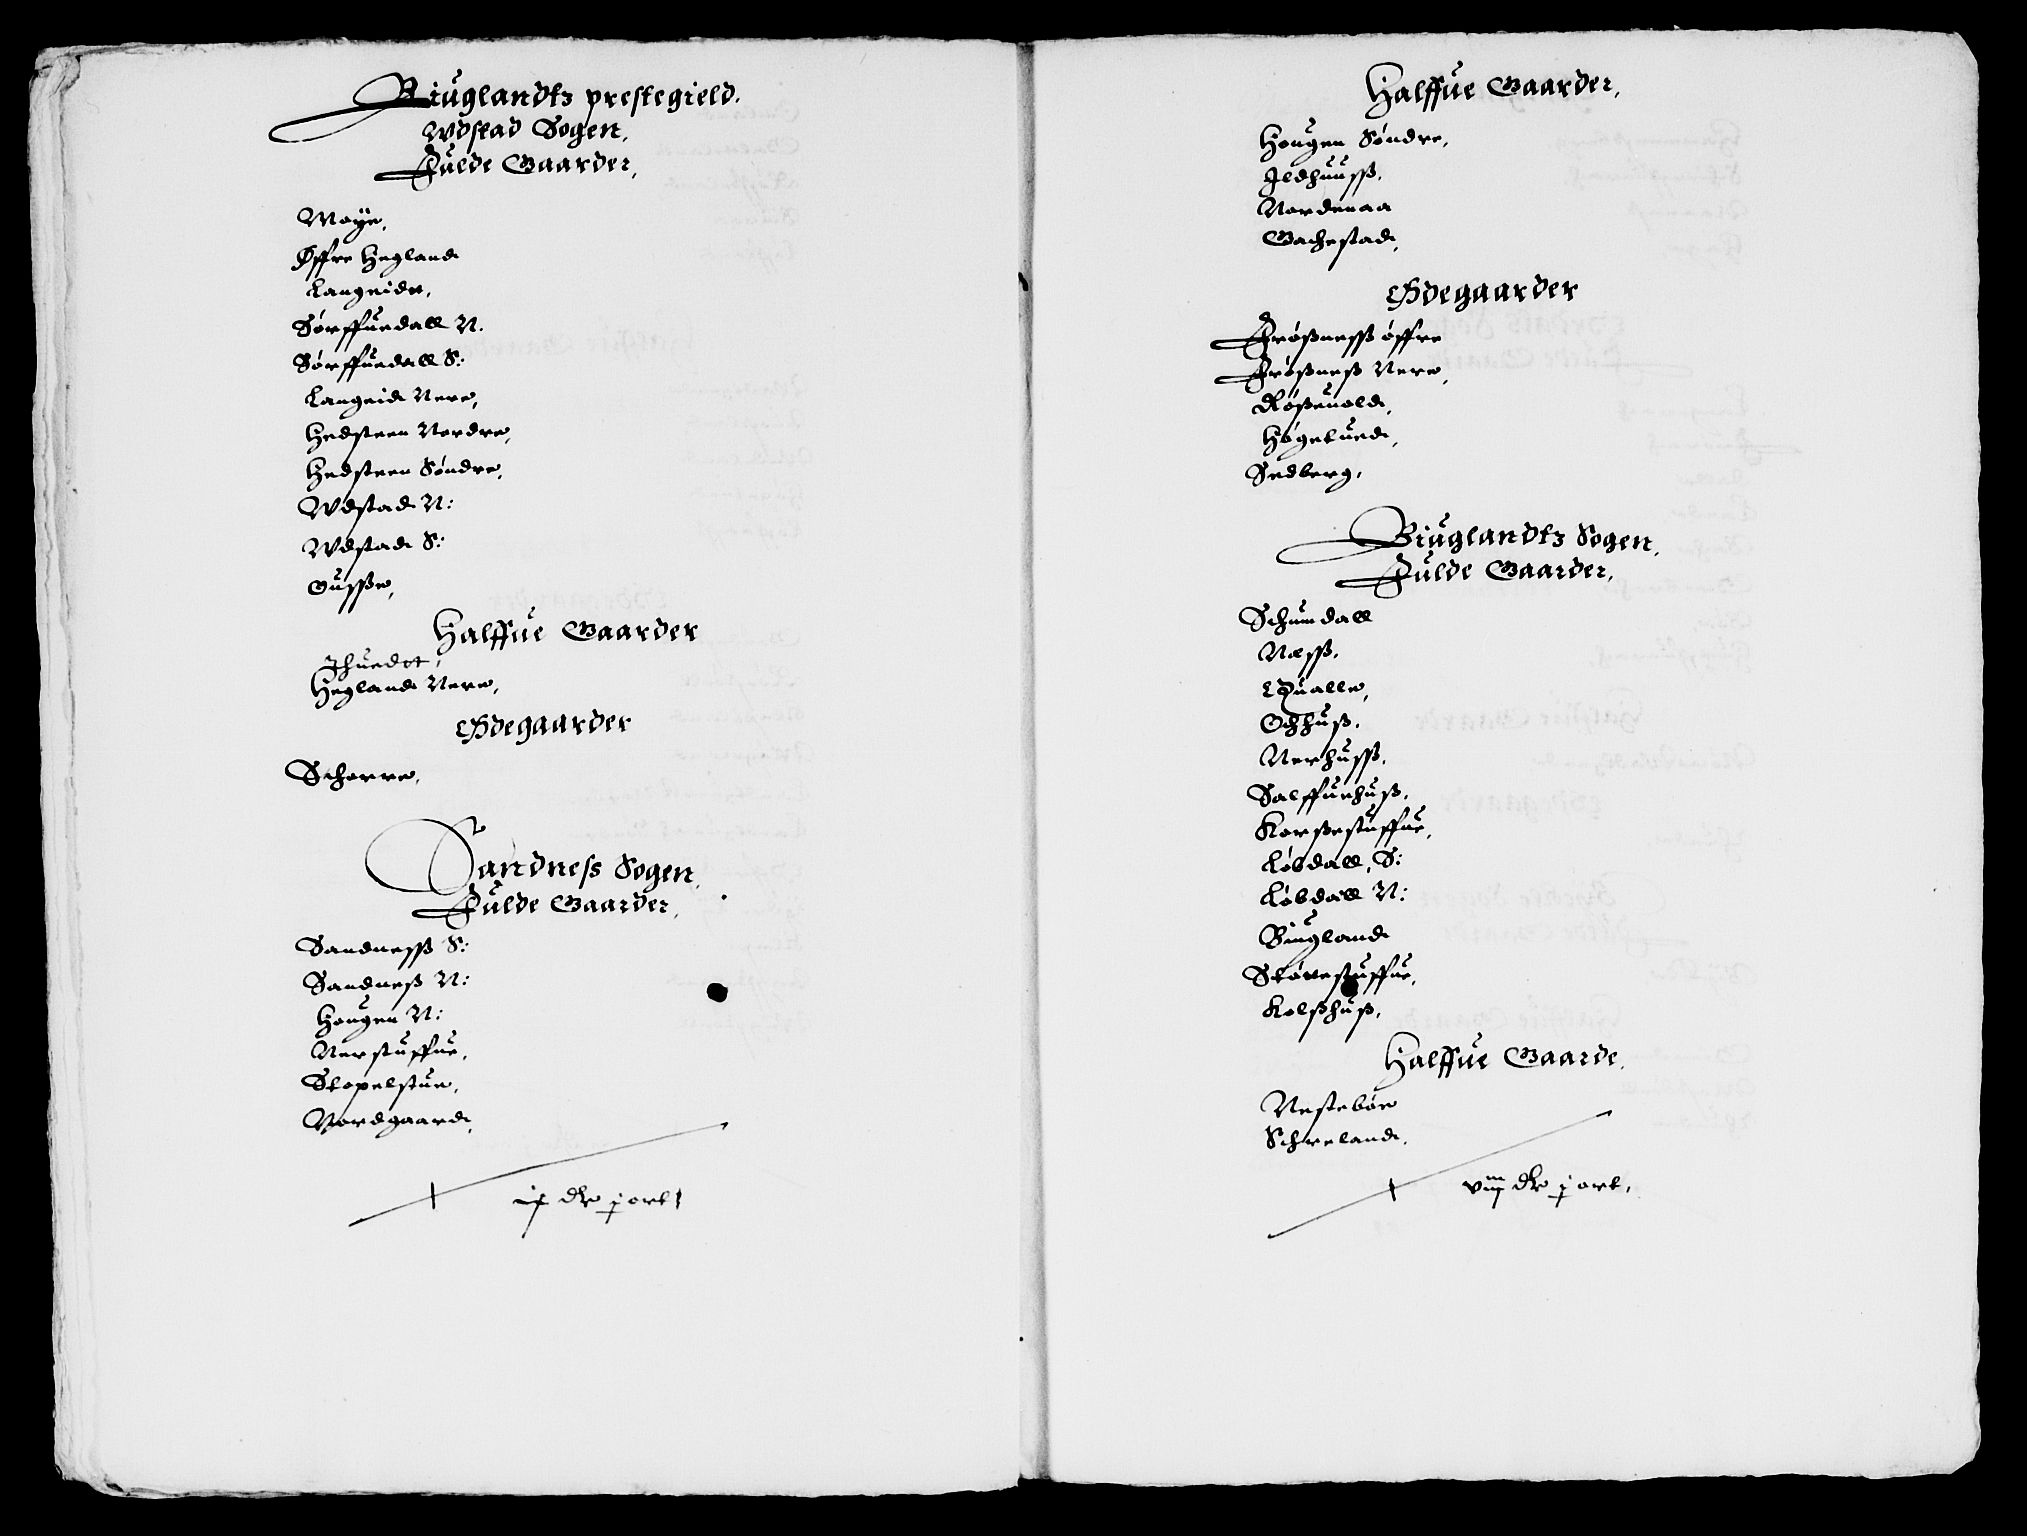 Biuglandtz prestegield.
Wdstad Sogen,
Fulde Gaarder,
Moÿe,
Øffre Hegland
Langeide,
Sørffuedall N.
Sørffuedall S:
Langeid Nere,
Hedsteen Nordre,
Hedsteen Søndre,
Wdstad N:
Wdstad S:
Gusße,
Halffue Gaarder
Jhuedet,
Hegland Nere,
Ødegaarder
Schorre,
Sandness Sogen,
Fulde Gaarder,
Sandness S:
Sandneß N:
Hougen N:
Nerstuffue,
Stopelstue,
Nordgaard,
ij dr j ort
Halffue Gaarder,
Hougen Søndre,
Jldhuusß,
Nordenaa
Bachestad,
Ødegaarder
Frøßnesß øffre
Frøßneß Nere,
Røßeuold,
Høgelued,
Sedberg,
Biuglandtz Sogen,
Fulde Gaarder,
Schumdall
Næsß,
Qualle,
Ochhuß,
Nerhusß,
Salffuehuß,
Korßestuffue,
Løbdall, S:
Løbdall N:
Biugland
Støuestuffue,
Kolßhuß,
Halffue Gaarde,
Vestebøe
Schreland,
viij dr j ort,